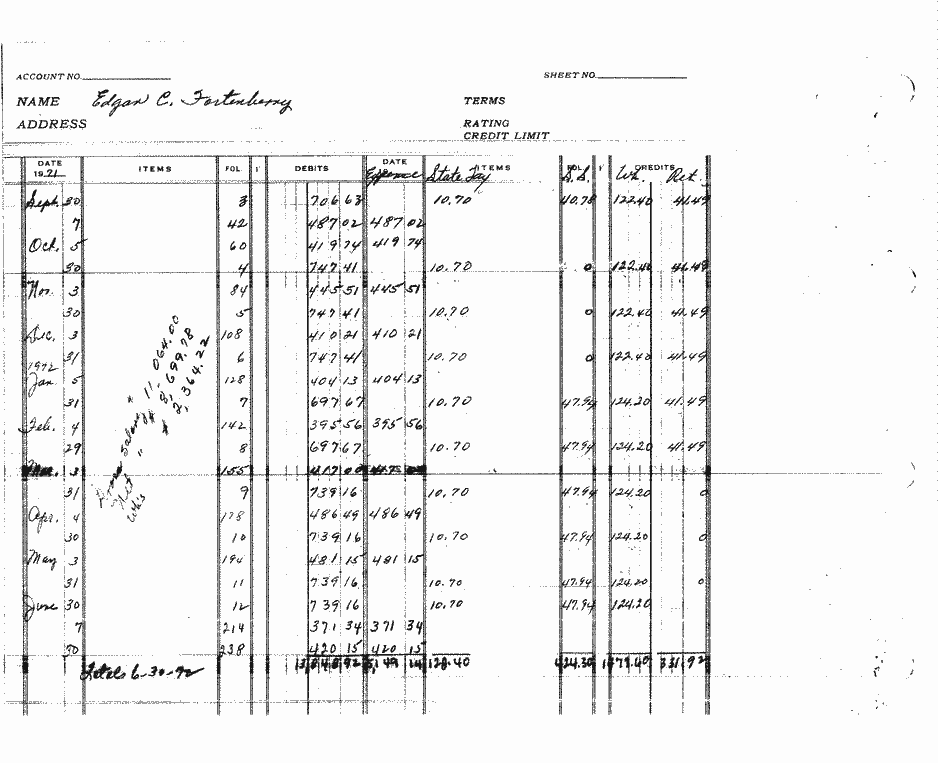 ACCOUNT NO. SHEET NO.
NAME Edgar C. Fortenberry TERMS
ADDRESS RATING
CREDIT LIMIT
DATE 1971 ITEMS FOL DEBITS DATE Expense State Tax ITEMS FOL S.S. CREDITS Wh. Ret.
Sept. 30 3 706 63 10.70 40.78 122.40 41.49
7 42 487 02 487 02
Oct. 5 60 419 74 419 74
30 4 747 41 10.70 0 122.40 41.49
Nov. 3 84 445 51 445 51
30 5 747 41 10.70 0 122.40 41.49
Dec. 3 108 410 21 410 21
31 6 747 41 10.70 0 122.40 41.49
1972
Jan. 5 128 404 13 404 13
31 7 697 67 10.70 47.94 124.20 41.49
Feb. 4 142 395 56 395 56
29 8 697 67 10.70 47.94 124.20 41.49
Mar. 3 155 417 00
31 9 739 16 10.70 47.94 124.20 0
Apr. 4 178 486 49 486 49
30 10 739 16 10.70 47.94 124.20 0
May 3 194 481 15 481 15
31 11 739 16 10.70 47.94 124.20 0
June 30 12 739 16 10.70 47.94 124.20
7 214 371 34 371 34
30 238 420 15 420 15
Totals 6-30-72 128.40 331.92
Gross Salary $ 11,064.00
Net " $ 8,699.78
Whs $ 2,364.22